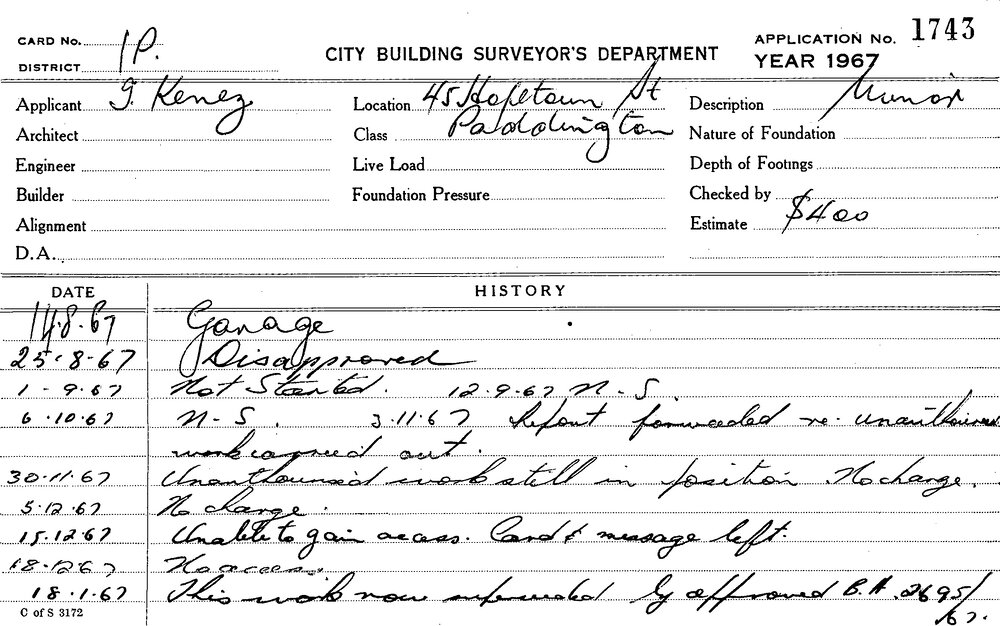 CARD No. 1P.
DISTRICT
CITY BUILDING SURVEYOR'S DEPARTMENT
APPLICATION No. 1743
YEAR 1967
Applicant G. Kenez
Location 45 Hopetoun St
Paddington
Description Minor
Architect
Class
Nature of Foundation
Engineer
Live Load
Depth of Footings
Builder
Foundation Pressure
Checked by
Alignment
Estimate $400
D.A.
DATE HISTORY
14.8.67 Garage
25.8.67 Disapproved
1-9.67 Not Started. 12.9.67 N-S.
6.10.67 N-S. 3.11.67 Report forwarded re. unauthorised
work carried out.
30.11.67 Unauthorised work still in position. No change.
5.12.67 No change.
15.12.67 Unable to gain access. Card & message left.
18.12.67 No access.
18.1.67 This work now superseded by approved B.A. 2695/
67.
C of S 3172